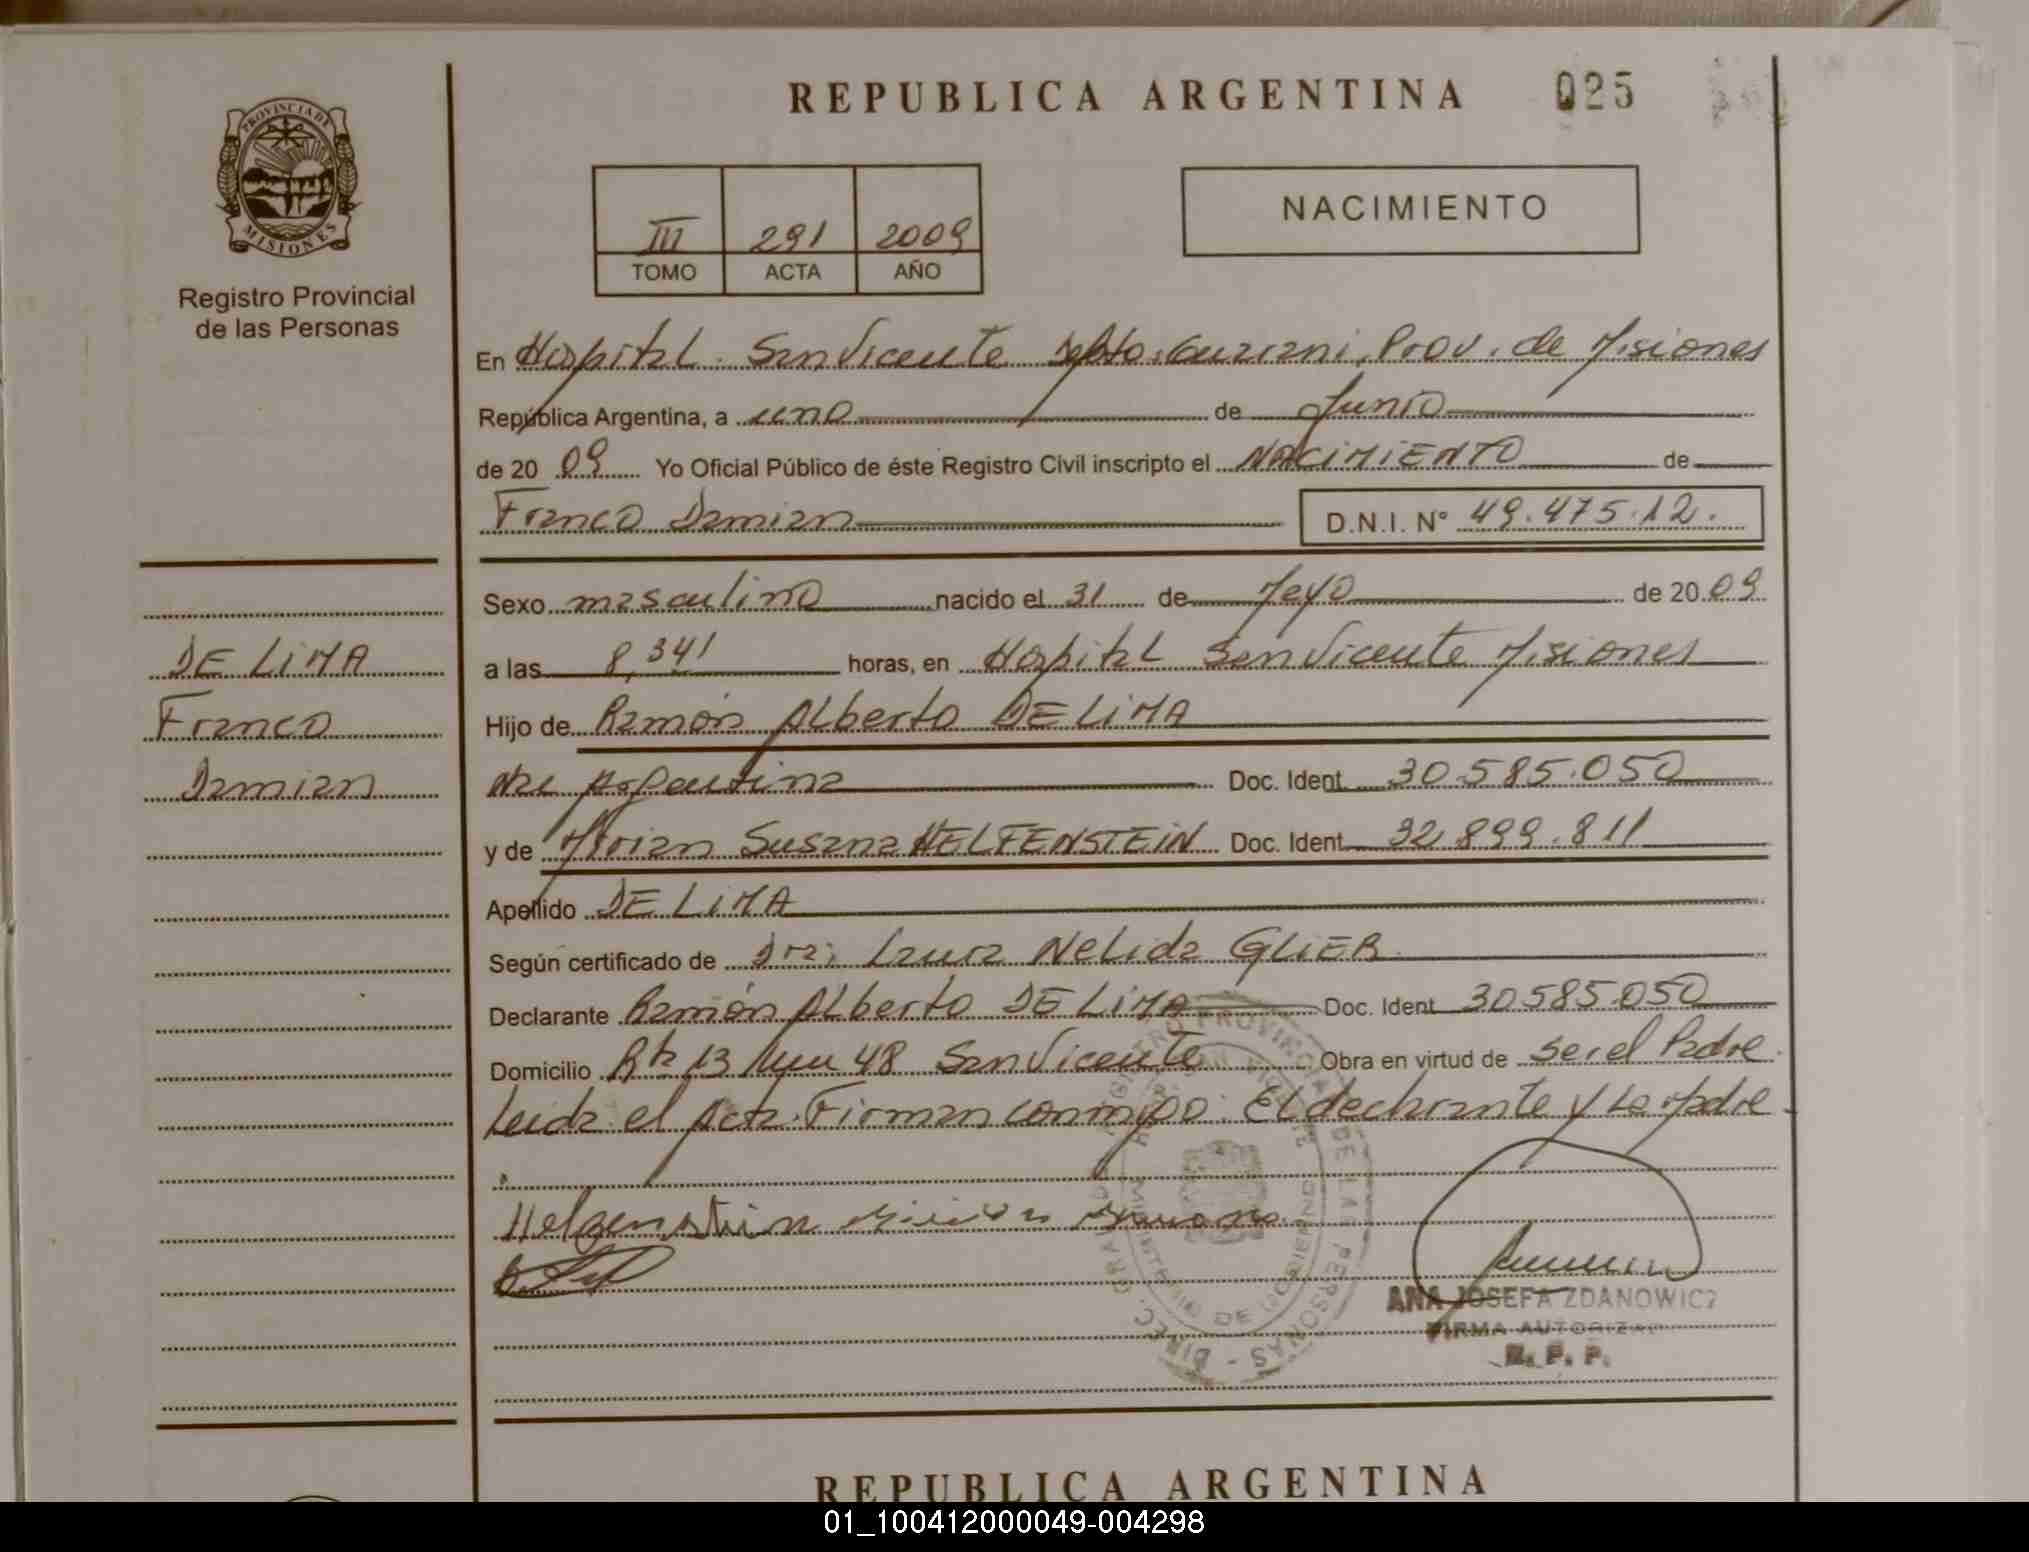 REPUBLICA ARGENTINA 025
PROVINCIA DE
MISIONES
Registro Provincial
de las Personas
III 291 2009
TOMO ACTA AÑO
NACIMIENTO
En Hospital San Vicente Dpto. Guarani, Prov. de Misiones
República Argentina, a uno de Junio
de 20 09 Yo Oficial Público de éste Registro Civil inscripto el NACIMIENTO de
Franco Damian D.N.I. N° 49.475.12.
Sexo masculino nacido el 31 de Mayo de 20 09
a las 8,34 horas, en Hospital San Vicente Misiones
Hijo de Ramón Alberto DE LIMA
Nac Argentina Doc. Ident 30.585.050
y de Mirian Susana HELFENSTEIN Doc. Ident 32.899.811
Apellido DE LIMA
Según certificado de Dra; Laura Nelida GLIER
Declarante Ramón Alberto DE LIMA Doc. Ident 30585.050
Domicilio Rta 13 Km 48 San Vicente Obra en virtud de ser el Padre
Leida el Acta. Firman conmigo. El declarante y La Madre
Helfenstein Mirian Susana
ANA JOSEFA ZDANOWICZ
FIRMA AUTORIZA
R. P. P.
DE LIMA
Franco
Damian
REGISTRO PROVINCIAL DE LAS PERSONAS - DIREC. GRAL.
MINISTERIO DE GOBIERNO
REPUBLICA ARGENTINA
01_100412000049-004298